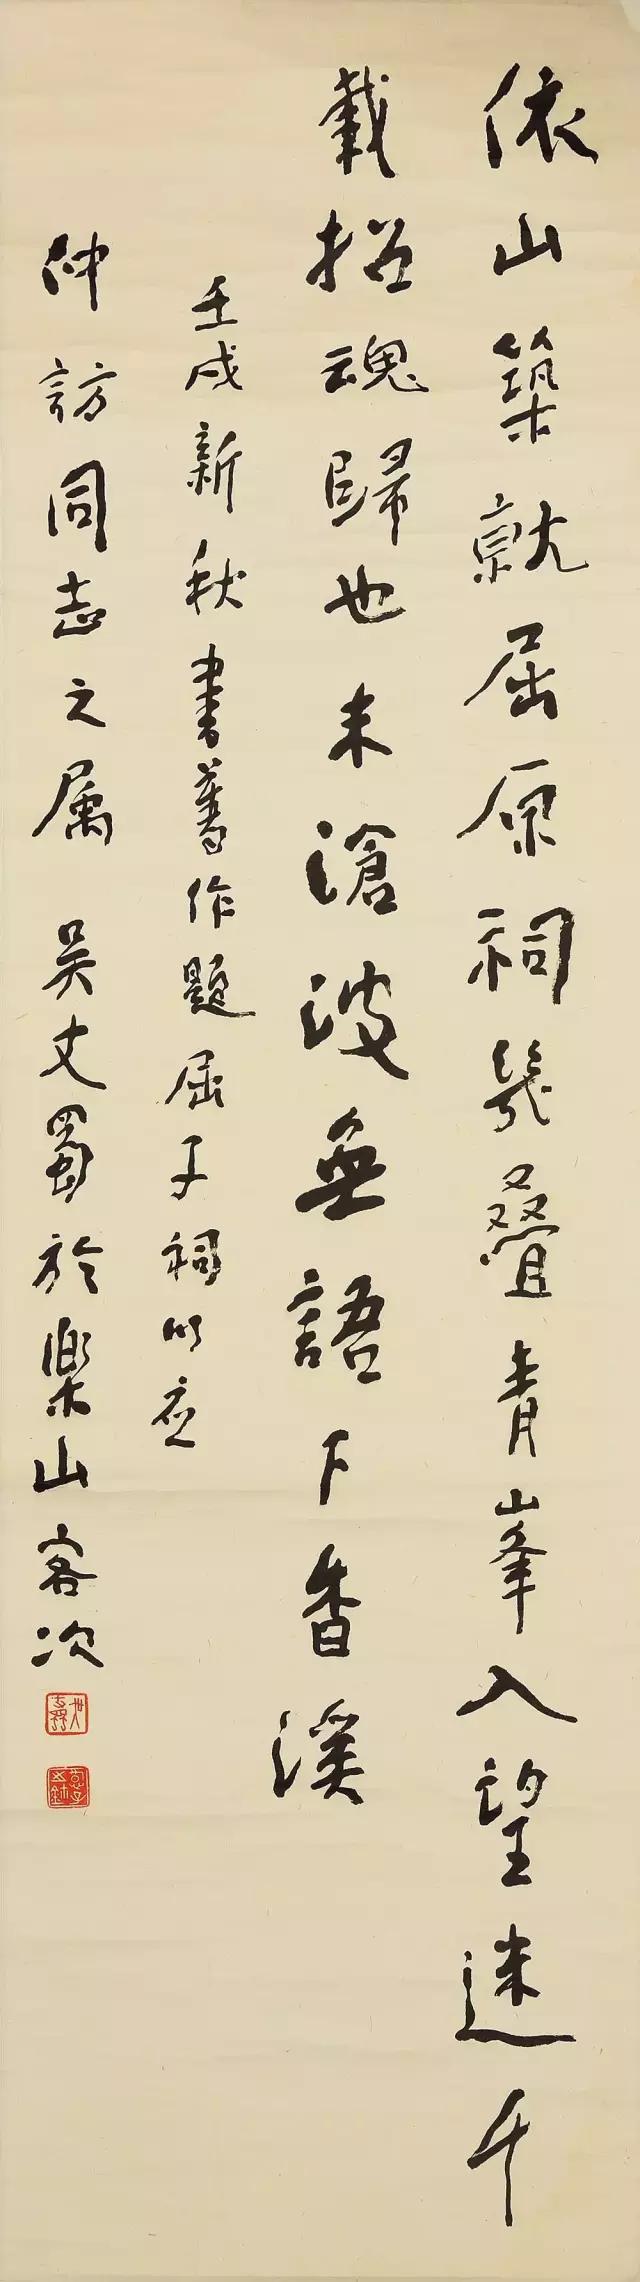 依山築就屈原祠幾叠青峯入望迷千
載招魂歸也未滄波無語下香溪
壬戌新秋書舊作題屈子祠以應
仲訪同志之属 吴丈蜀於樂山客次